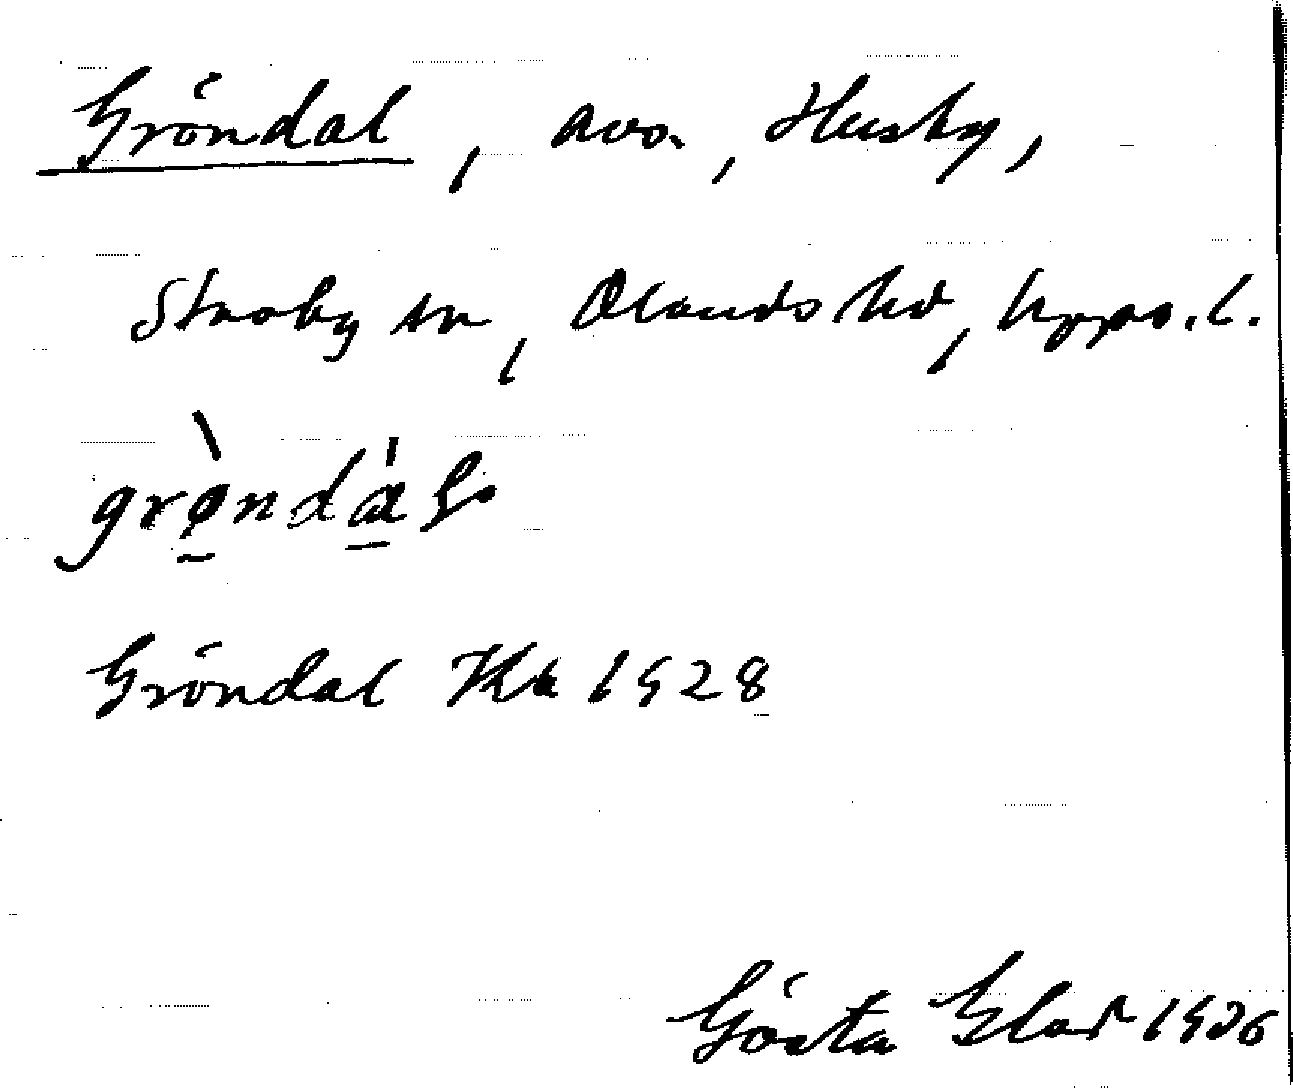 Gröndal, avs., Husby,
Skuttunge sn, Olands hd, Upps. l.
grøndal
Gröndal Kk 1928
Gösta Glad 1936